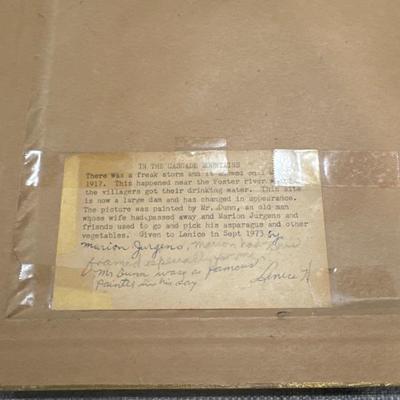 IN THE CASCADE MOUNTAINS
There was a freak storm and it snowed on
1917. This happened near the Foster river where
the villagers got their drinking water. This site
is now a large dam and has changed in appearance.
The picture was painted by Mr. Dunn, an old man
whose wife had passed away and Marion Jurgens and
friends used to go and pick his asparagus and other
vegetables. Given to Lenice in Sept 1973 by
Marion Jurgens, Marion had
framed especially for me.
Mr Dunn was a famous
Painter in his day
Lenice